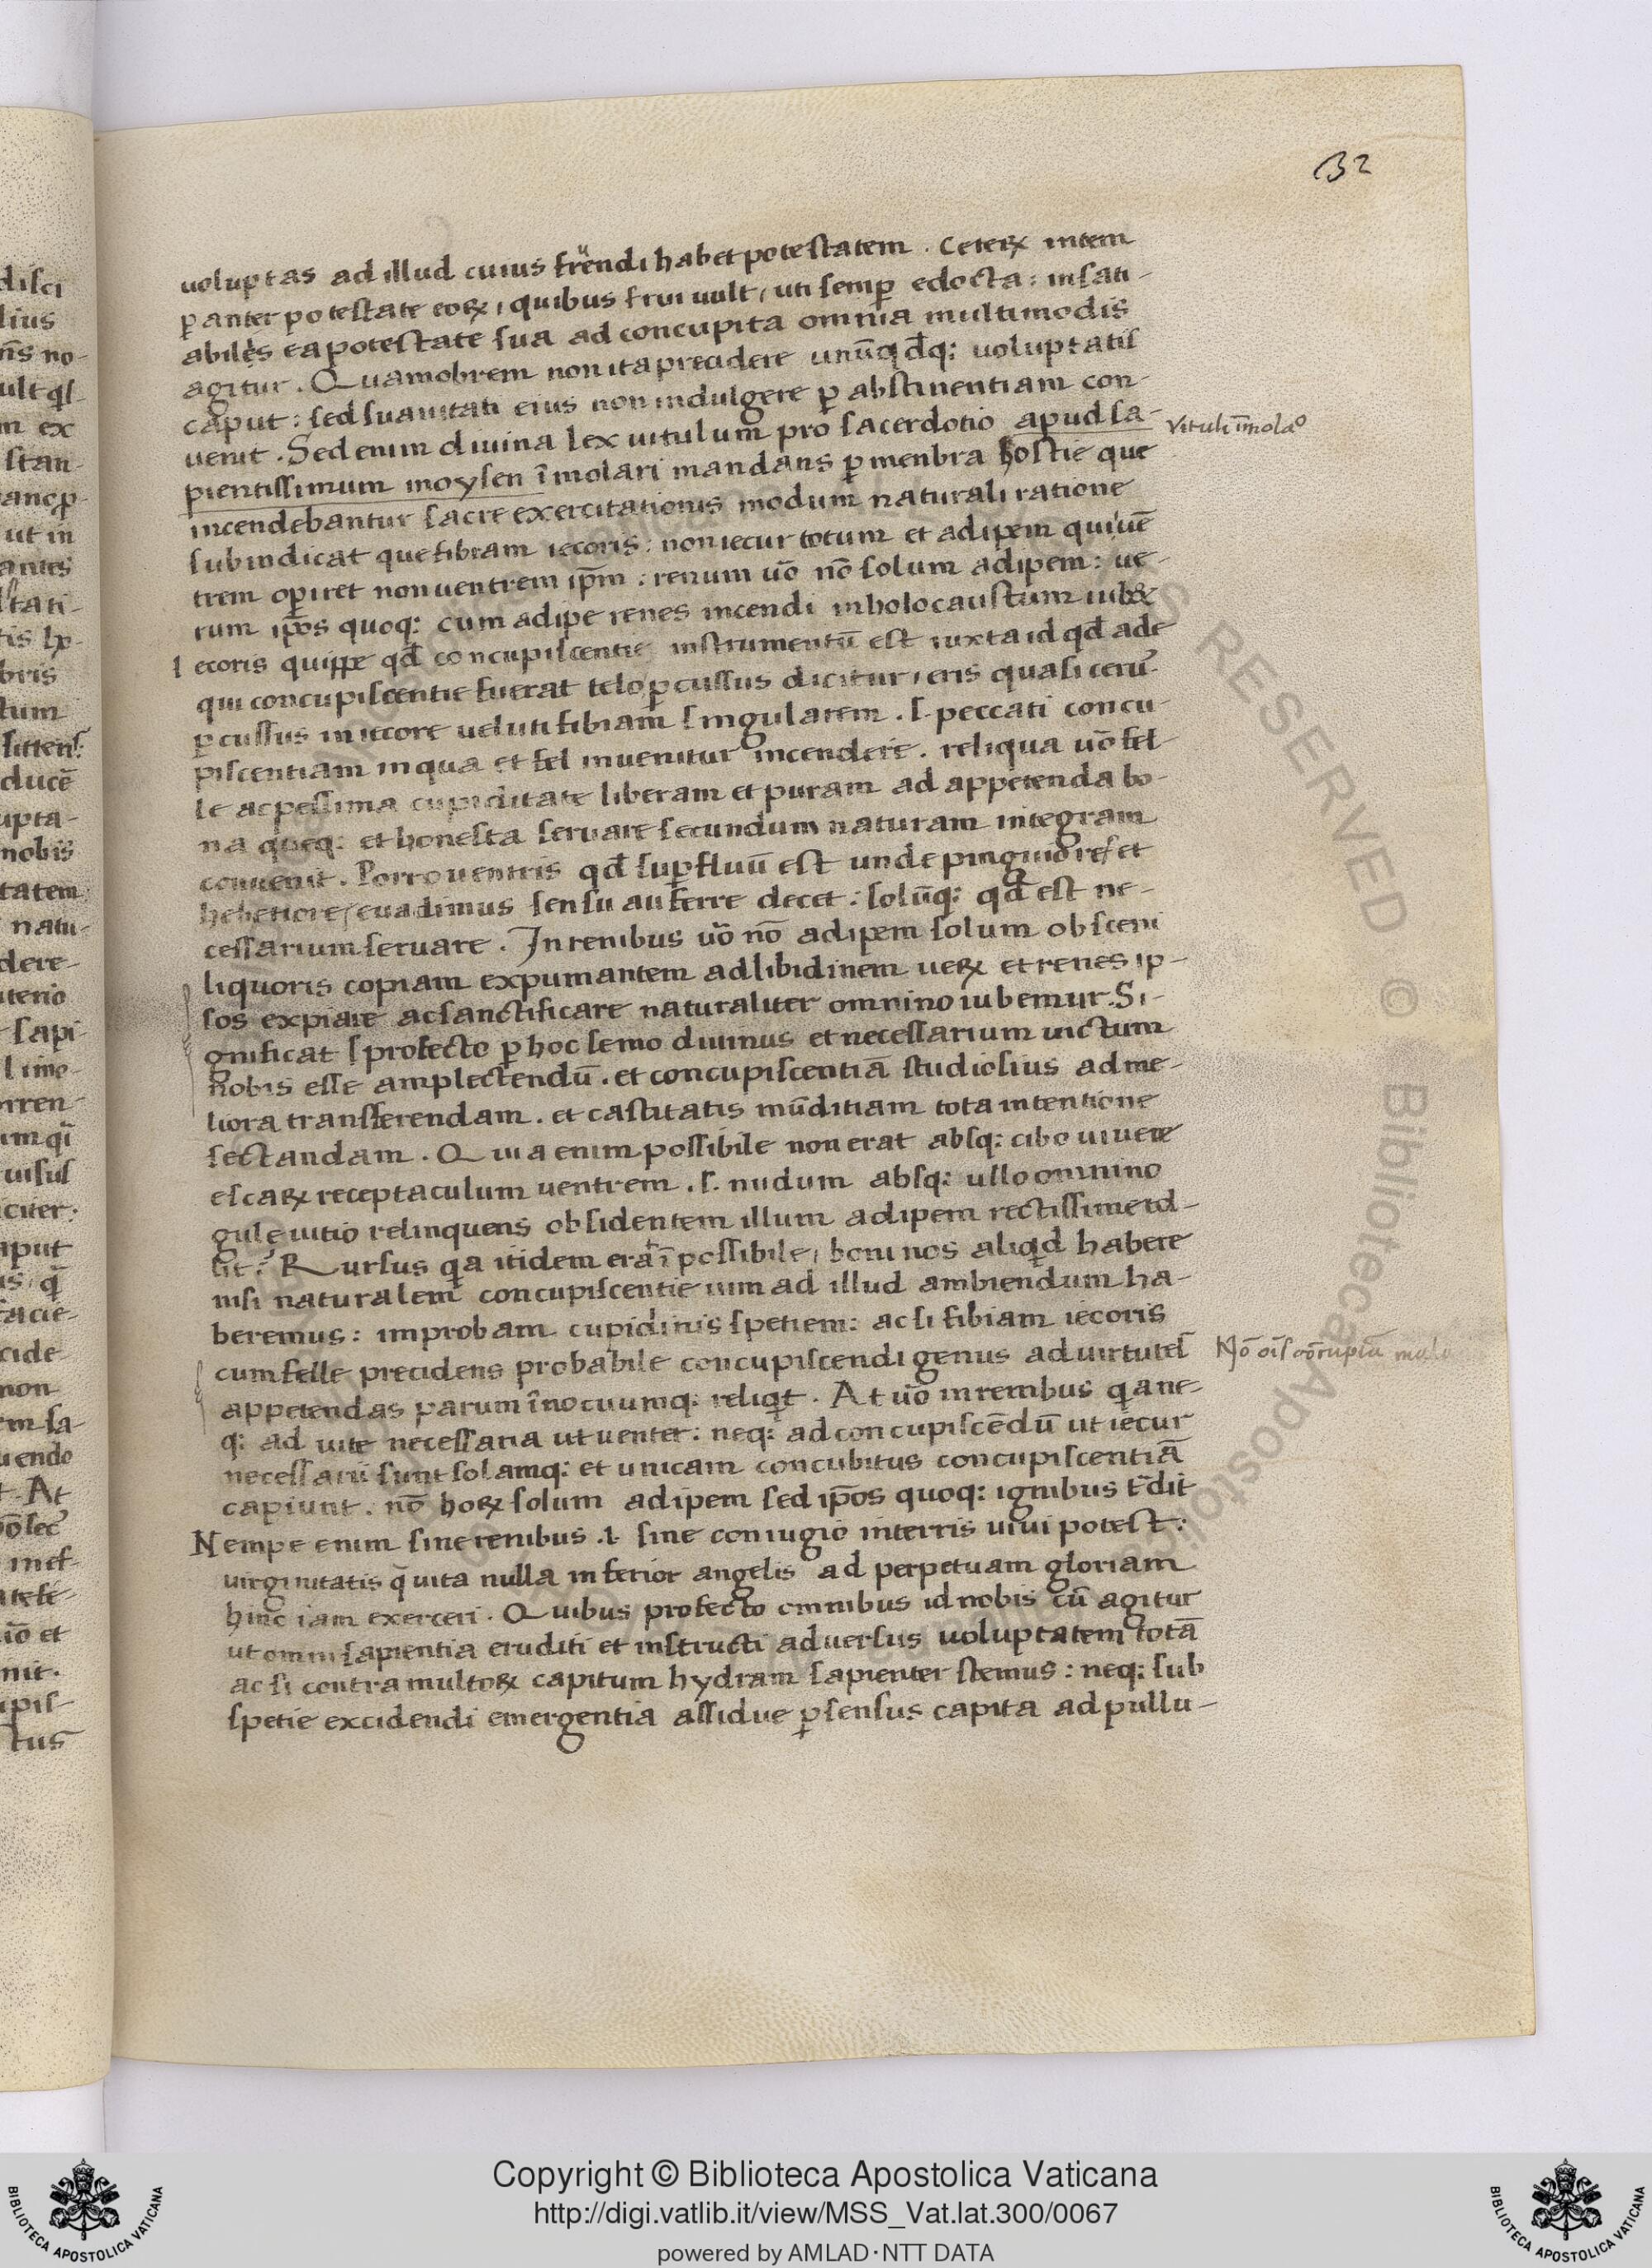 32
uoluptas ad illud cuius fruendi habet potestatem . Ceteꝝ intem
ꝑanter potestate eoꝝ, quibus frui uult, uti semꝑ edocta: insati-
abiles ea potestate sua ad concupita omnia multimodis
agitur . Quamobrem non ita precidere unūqđq: uoluptatis
caput: sed suauitati eius non indulgere ꝑ abstinentiam con-
uenit . Sed enim diuina lex uitulum pro sacerdotio apud sa-
pientissimum moysen īmolari mandans ꝑ menbra hostie que
incendebantur sacre exercitationis modum naturali ratione
subindicat que fibram iecoris: non iecur totum et adipem qui uē
trem oꝑiret non uentrem ip̄m: renum uō nō solum adipem: ue-
rum ip̄os quoq: cum adipe renes incendi in holocaustum iub&
Iecoris quippe qđ concupiscentie instrumentū est iuxta id qđ a de
qui concupiscentie fuerat telo ꝑcussus dicitur, eris quasi ceru᷒
ꝑcussus in iecore ueluti fibiam singularem .s. peccati concu-
piscentiam in qua et fel inuenitur incendere . reliqua uō fel-
le ac pessima cupiditate liberam et puram ad appetenda bo-
na queq: et honesta seruare secundum naturam integram
conuenit . Porro uentris qđ suꝑfluū est unde pinguiores et
hebetiores euadimus sensu auferre decet: solūq: qđ est ne-
cessarium seruare . In renibus uō nō adipem solum obsceni
liquoris copiam expumantem ad libidinem ueꝝ et renes ip-
sos expiare ac sanctificare naturaliter omnino iubemur. Si-
gnificat profecto ꝑ hoc semo diuinus et necessarium uictum
nobis esse amplectendū . et concupiscentiā studiosius ad me-
liora transferendam . et castitatis mūditiam tota intentione
sectandam . Quia enim possibile non erat absq: cibo uiuere
escaꝝ receptaculum uentrem .s. nudum absq: ullo omnino
gule uitio relinquens obsidentem illum adipem rectissime tol-
lit: Rursus qa itidem erat īpossibile, boni nos aliqd habere
nisi naturalem concupiscentie uim ad illud ambiendum ha-
beremus: improbam cupidinis spetiem: ac si fibiam iecoris
cum felle precidens probabile concupiscendi genus ad uirtutes
appetendas parum īnocuumq: reliqt . At uō in renibus qa ne-
q: ad uite necessaria ut uenter: neq: ad concupiscēdū ut iecur
necessarii sunt solamq: et unicam concubitus concupiscentiā
capiunt . nō hoꝝ solum adipem sed ip̄os quoq: ignibus t̄dit
Nempe enim sine renibus .i. sine coniugio in terris uiui potest:
uirginitatis q̄ uita nulla inferior angelis ad perpetuam gloriam
hinc iam exerceri . Quibus profecto omnibus id nobis cū agitur
ut omni sapientia eruditi et instructi aduersus uoluptatem totā
ac si contra multoꝝ capitum hydram sapienter stemus: neq: sub
spetie excidendi emergentia assidue ꝑ sensus capita ad pullu-
Vituli īmolaᵒ
Nō oīs corrupta mala
disci
lius
ult
m ex
stan-
ut in
antes
tati-
bris
tum
ducē
upta-
nobis
tatem
natu-
dere-
iterio
sapi-
limo-
uisus
citer:
aput
acie-
cide-
non
uendo
At
uō et
nit.
ipis-
tus
Copyright © Biblioteca Apostolica Vaticana
http://digi.vatlib.it/view/MSS_Vat.lat.300/0067
powered by AMLAD·NTT DATA
BIBLIOTECA APOSTOLICA VATICANA
BIBLIOTECA APOSTOLICA VATICANA
RESERVED © Biblioteca Apostolica